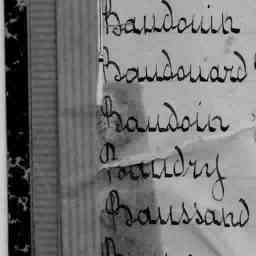 Baudouin
Baudouard
Baudoin
Baudry
Baussard